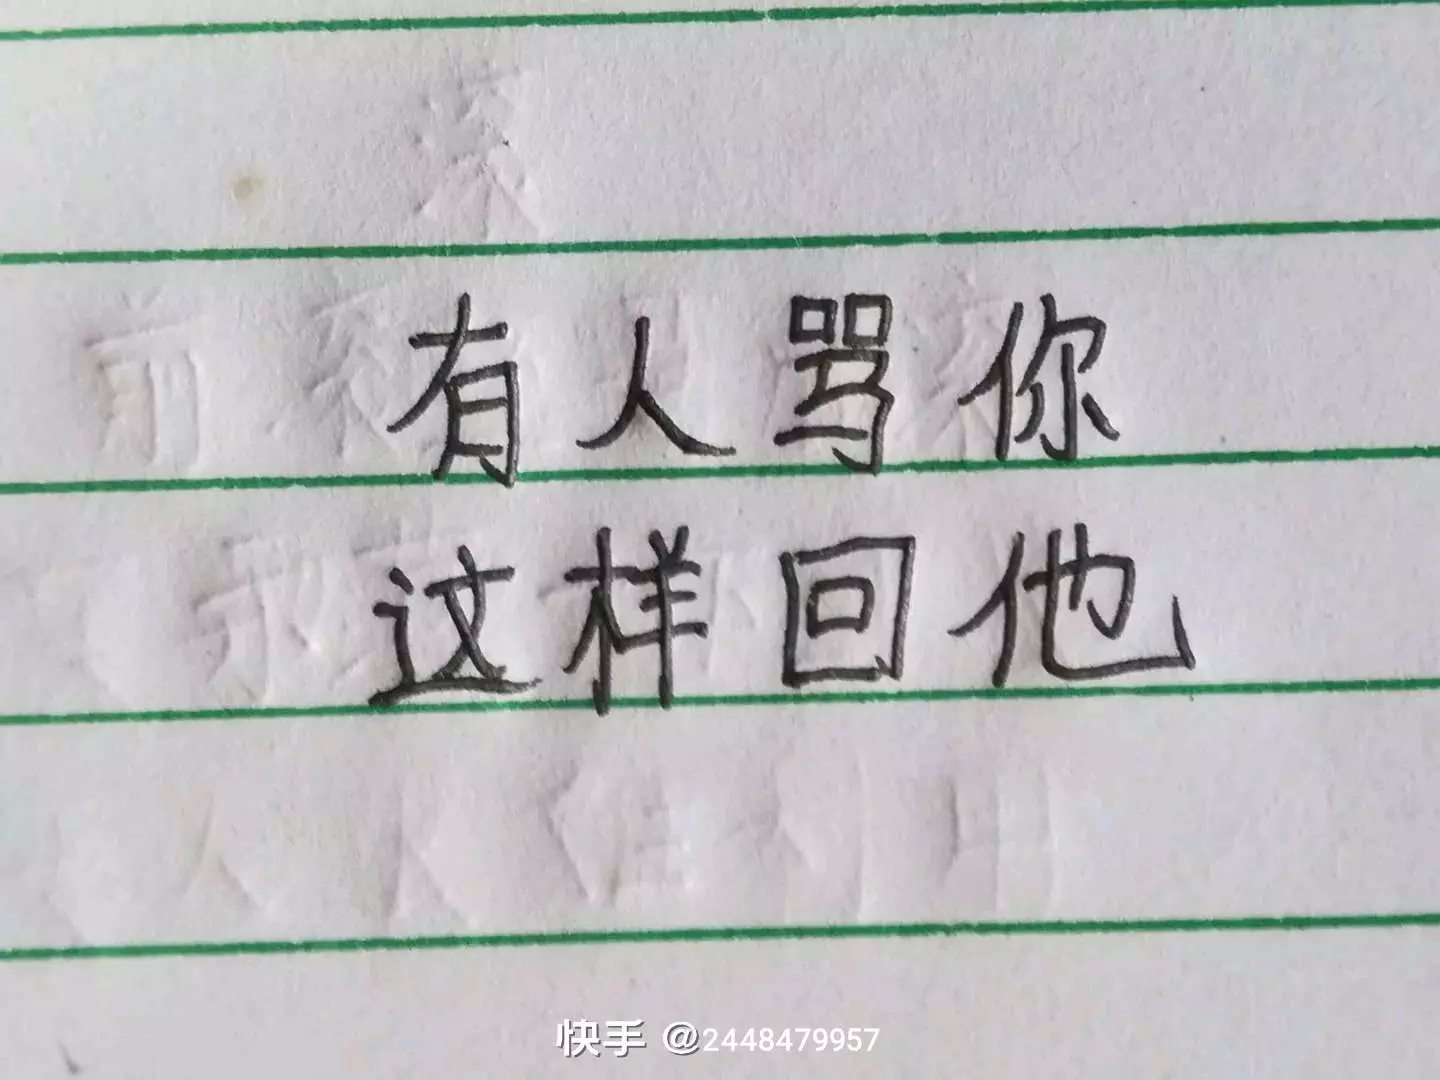 有人骂你
这样回他
快手 @2448479957